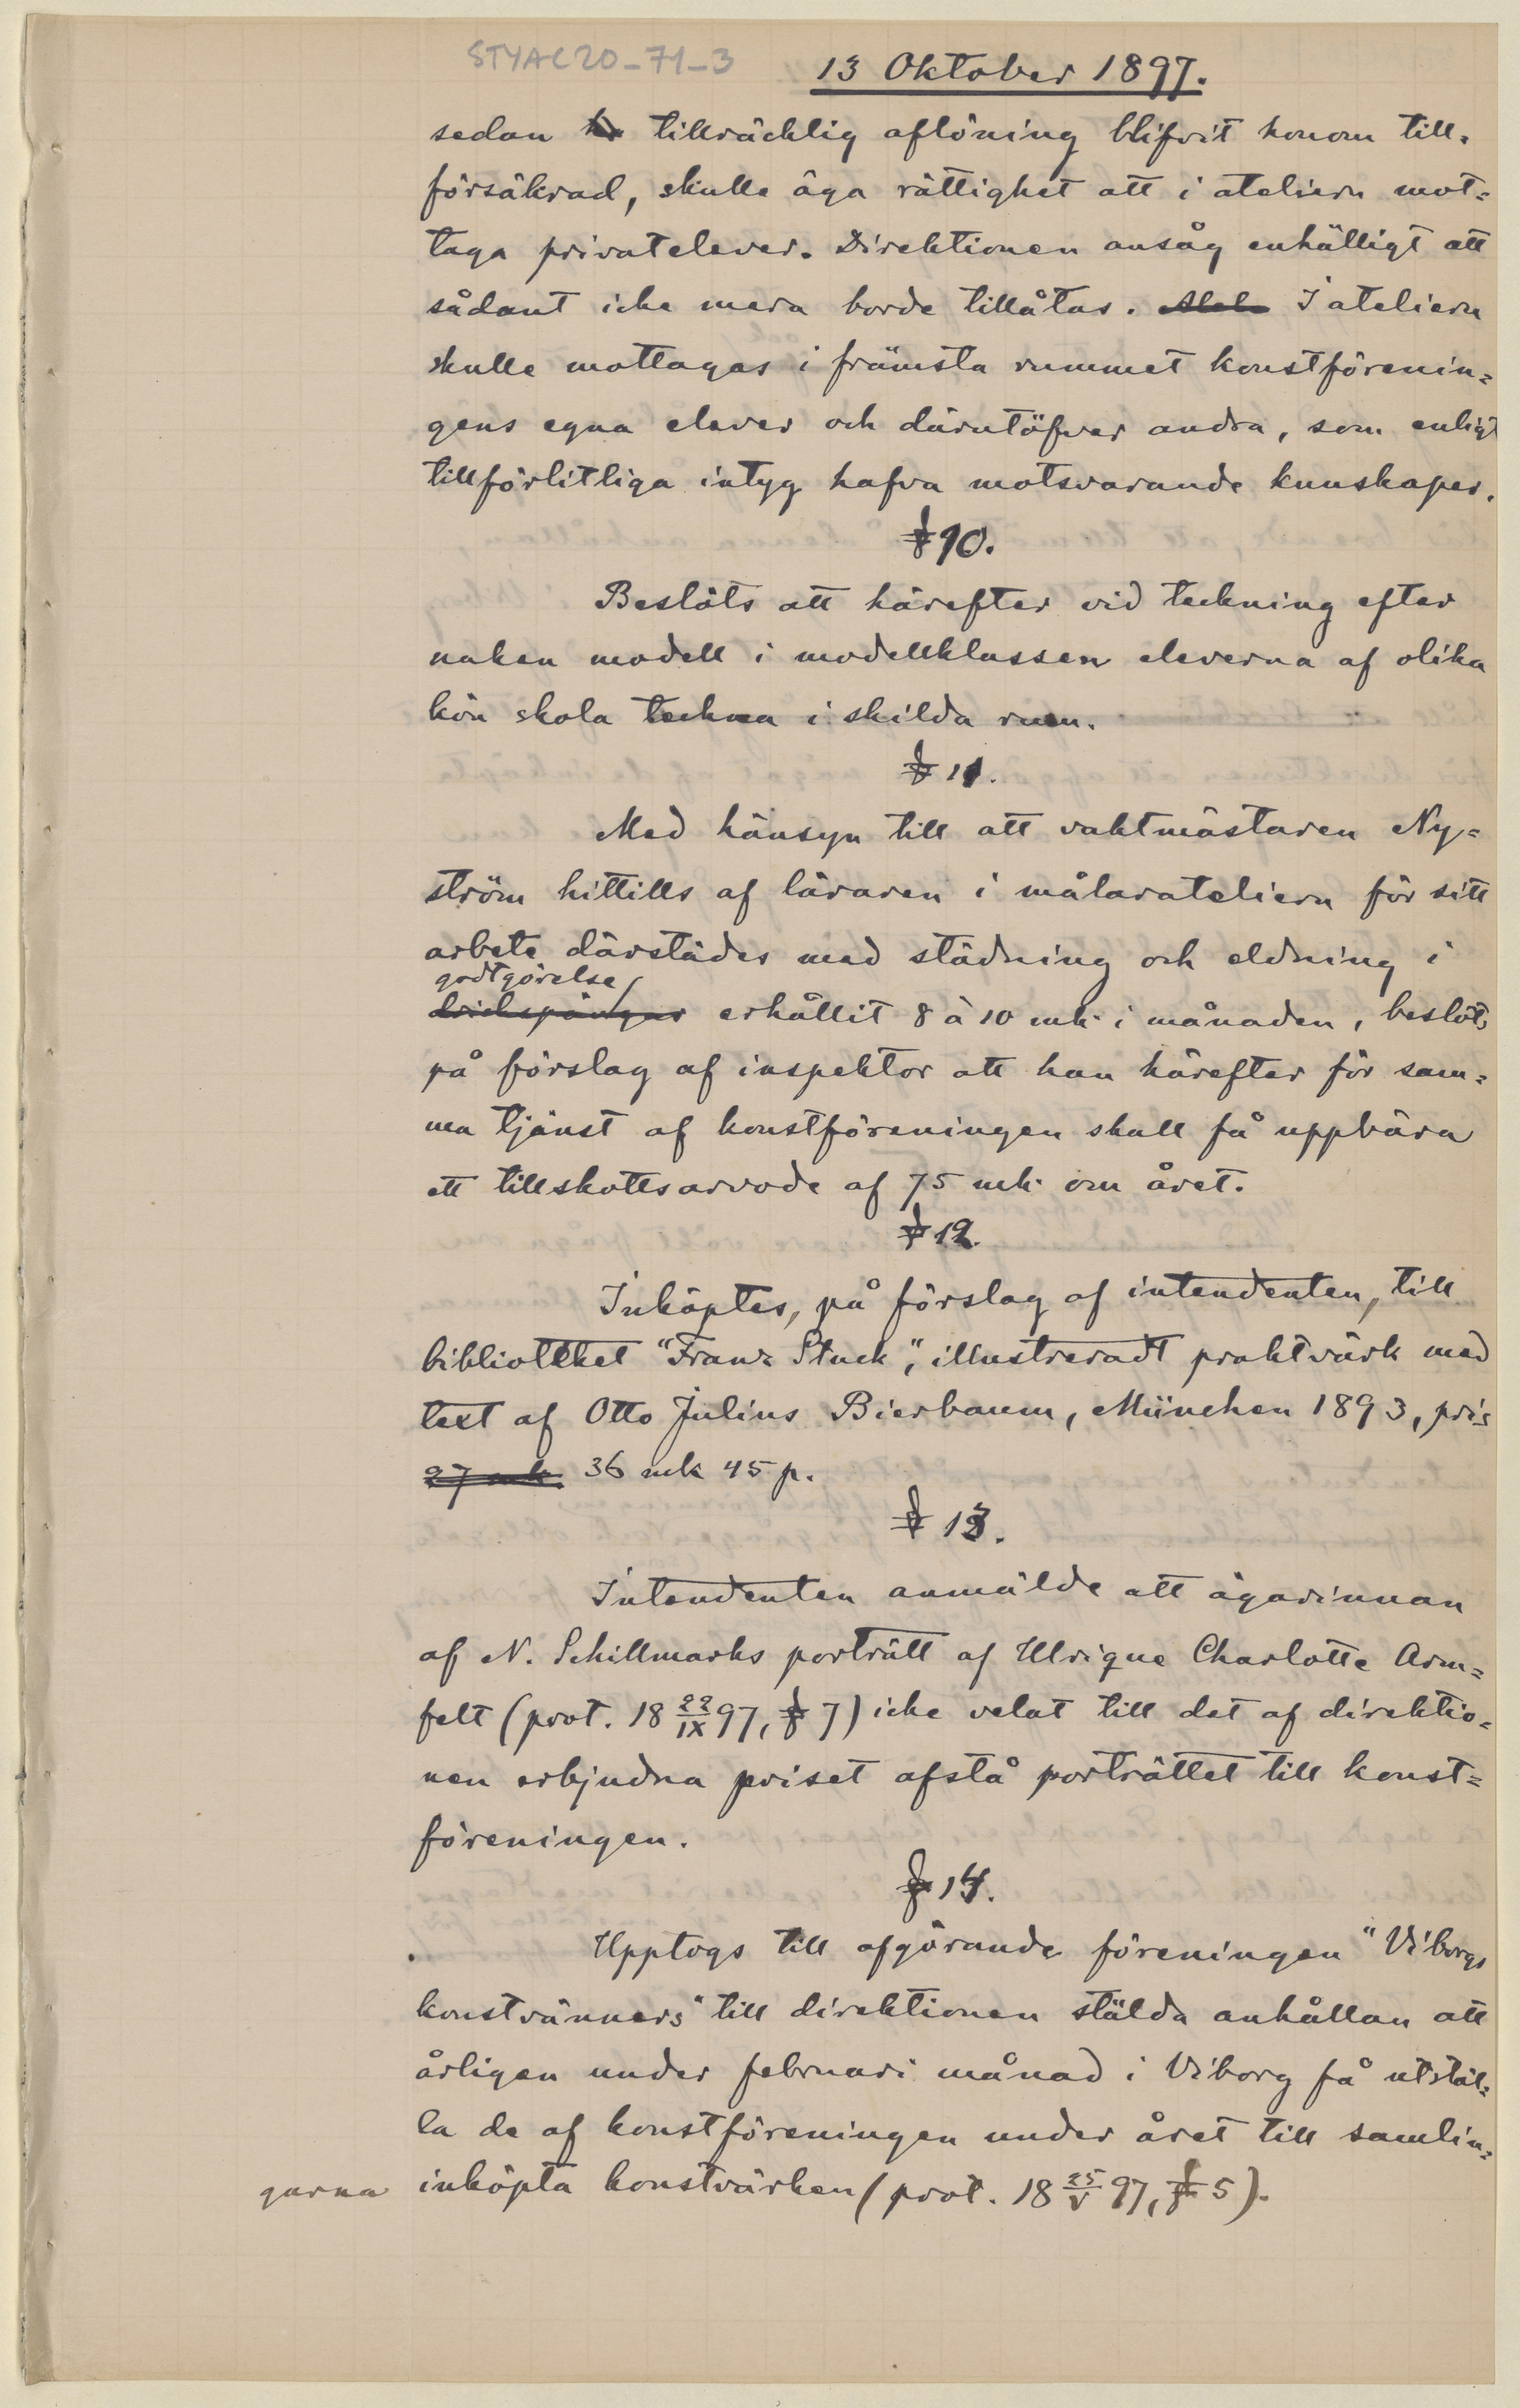 STYAC20-71-3
13 Oktober 1897.
sedan tillräcklig aflöning blifvit honom till-
försäkrad, skulle äga rättighet att i ateliern mot=
taga privatelever. Direktionen ansåg enhälligt att
sådant icke mera borde tillåtas. I ateliern
skulle mottagas i främsta rummet konstförenin=
gens egna elever och därutöfver andra, som enligt
tillförlitliga intyg hafva motsvarande kunskaper.
§ 10.
Beslöts att härefter vid teckning efter
naken modell i modellklassen eleverna af olika
kön skola teckna i skilda rum.
§ 11.
Med hänsyn till att vaktmästaren Ny=
ström hittills af läraren i målarateliern för sitt
arbete därstädes med städning och eldning i
godtgörelse
drickspängar erhållit 8 à 10 mk. i månaden, beslöts
på förslag af inspektor att han härefter för sam=
ma tjänst af konstföreningen skall få uppbära
ett tillskottsarvode af 75 mk. om året.
§ 12.
Inköptes, på förslag af intendenten, till
biblioteket "Franz Stuck", illustreradt praktvärk med
text af Otto Julius Bierbaum, München 1893, pris
27 mk. 36 mk 45 p.
§ 13.
Intendenten anmälde att ägarinnan
af N. Schillmarks porträtt af Ulrique Charlotte Arm=
felt (prot. 18 22/IX 97, § 7) icke velat till det af direktio=
nen erbjudna priset afstå porträttet till konst=
föreningen.
§ 14.
Upptogs till afgörande föreningen "Viborgs
konstvänners" till direktionen stälda anhållan att
årligen under februari månad i Viborg få utstäl=
la de af konstföreningen under året till samlin=
garna inköpta konstvärken (prot. 18 25/V 97, § 5).